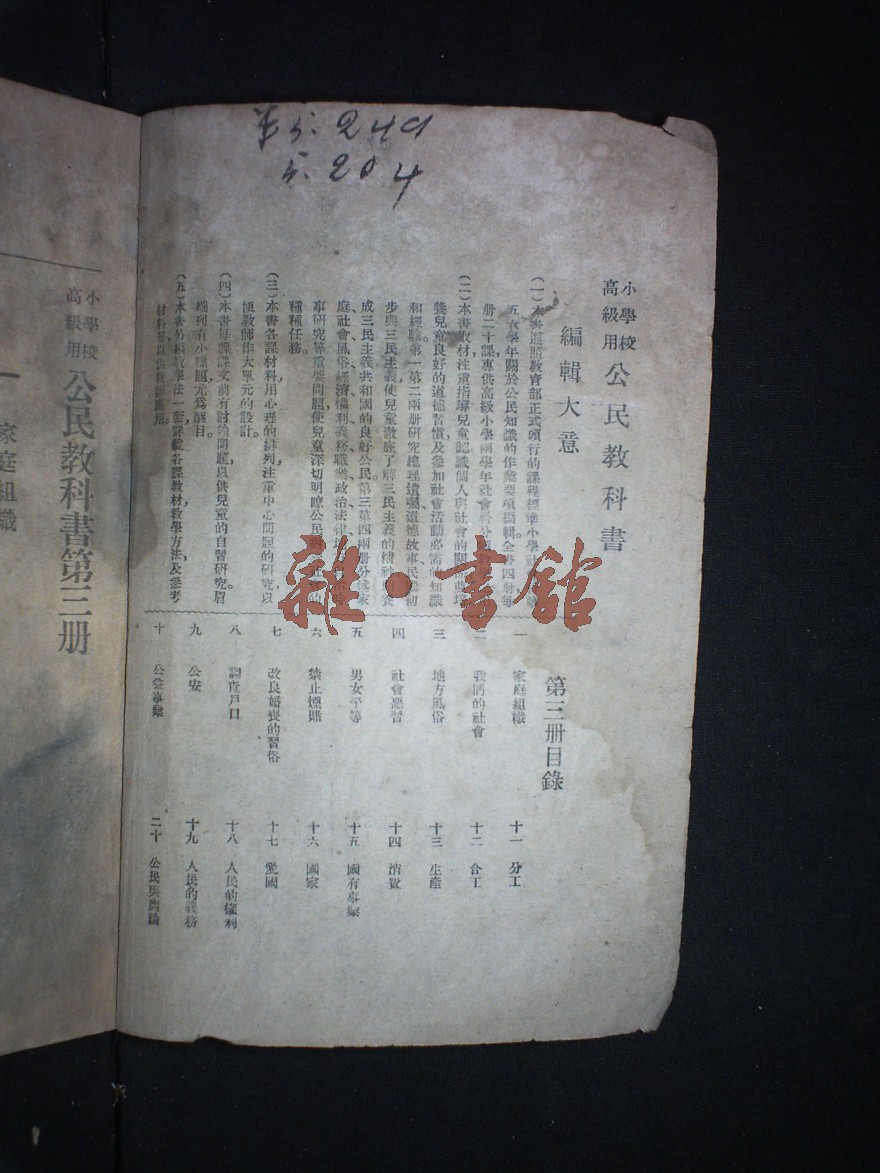 249
5. 204
小學校
高級用
公民教科書
編輯大意
(一)本書遵照教育部正式頒行的課程標準小學
五六學年關於公民知識的作業要項編輯全書四冊每
冊二十課專供高級小學兩學年社會科
(二)本書取材注重指導兒童認識個人與社會的關係並培
養兒童良好的道德習慣及參加社會活動必需的知識
和經驗。第一第二兩冊研究總理遺囑、道德故事、民權初
步與三民主義使兒童澈底了解三民主義的精神
成三民主義共和國的良好公民。第三第四兩冊分述家
庭、社會、風俗、經濟、權利、義務、職業、政治、法律
事研究等重要問題使兒童深切明瞭公民對 社會的
種種任務。
(三)本書各課材料用心理的排列注重中心問題的研究以
便教師作大單元的設計。
(四)本書每課課文前有討論問題以供兒童的自習研究。眉
端列有小標題尤為醒目。
(五)本書另編教學法一套詳載各課教材教學方法及參考
材料等以供教師應用
第三冊目錄
一 家庭組織
二 我們的社會
三 地方風俗
四 社會惡習
五 男女平等
六 禁止煙賭
七 改良婚喪的習俗
八 調查戶口
九 公安
十 公益事業
十一 分工
十二 合工
十三 生產
十四 消費
十五 國有事業
十六 國家
十七 愛國
十八 人民的權利
十九 人民的義務
二十 公民與輿論
小學校
高級用
公民教科書第三册
一 家庭組織
雜·書館